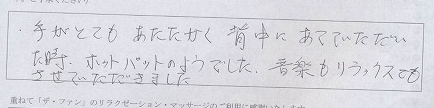 ・手がとても あたたかく 背中に あてていただい
た時、ホットパットのようでした。音楽もリラックスでも
させていただきました
重ねて「ザ・ファン」のリラクゼーション・マッサージのご利用に感謝いたします